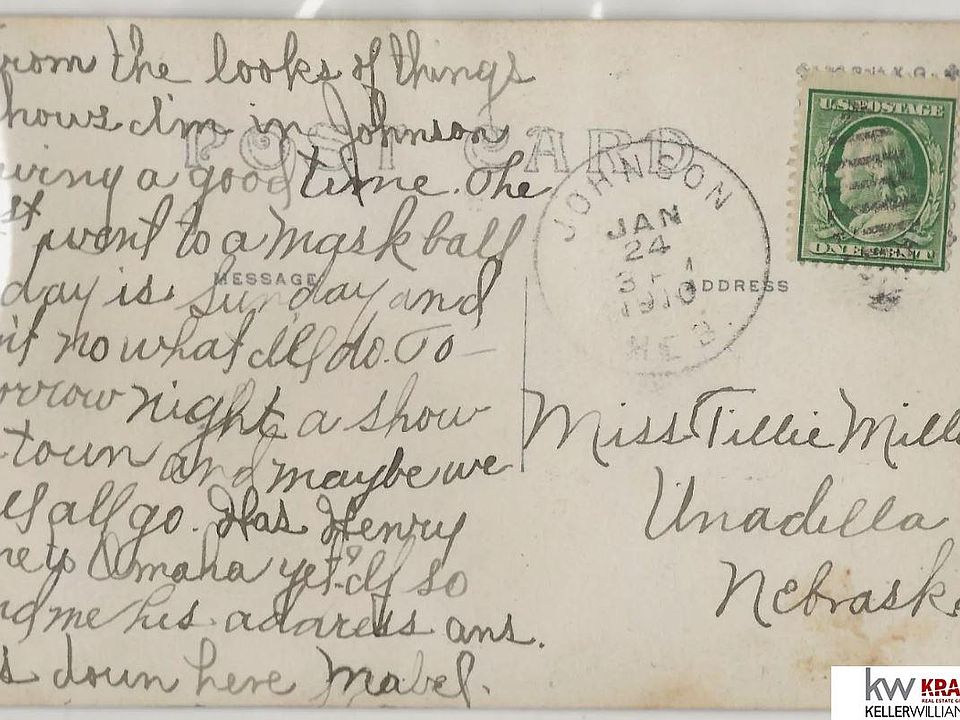 rom the looks of things
hows I'm in Johnson
ving a good time. The
st went to a mask ball
day is Sunday and
n't no what I'll do. To-
orrow night a show
town and maybe we
all go. Has Henry
ne to Omaha yet? If so
nd me his address ans.
s down here Mabel.
POST CARD
MESSAGE
ADDRESS
JOHNSON
JAN
24
1910
NEB.
U.S. POSTAGE
ONE CENT
Miss Tillie Mill
Unadilla
Nebraska
kw KRA
REAL ESTATE G
KELLERWILLIAM